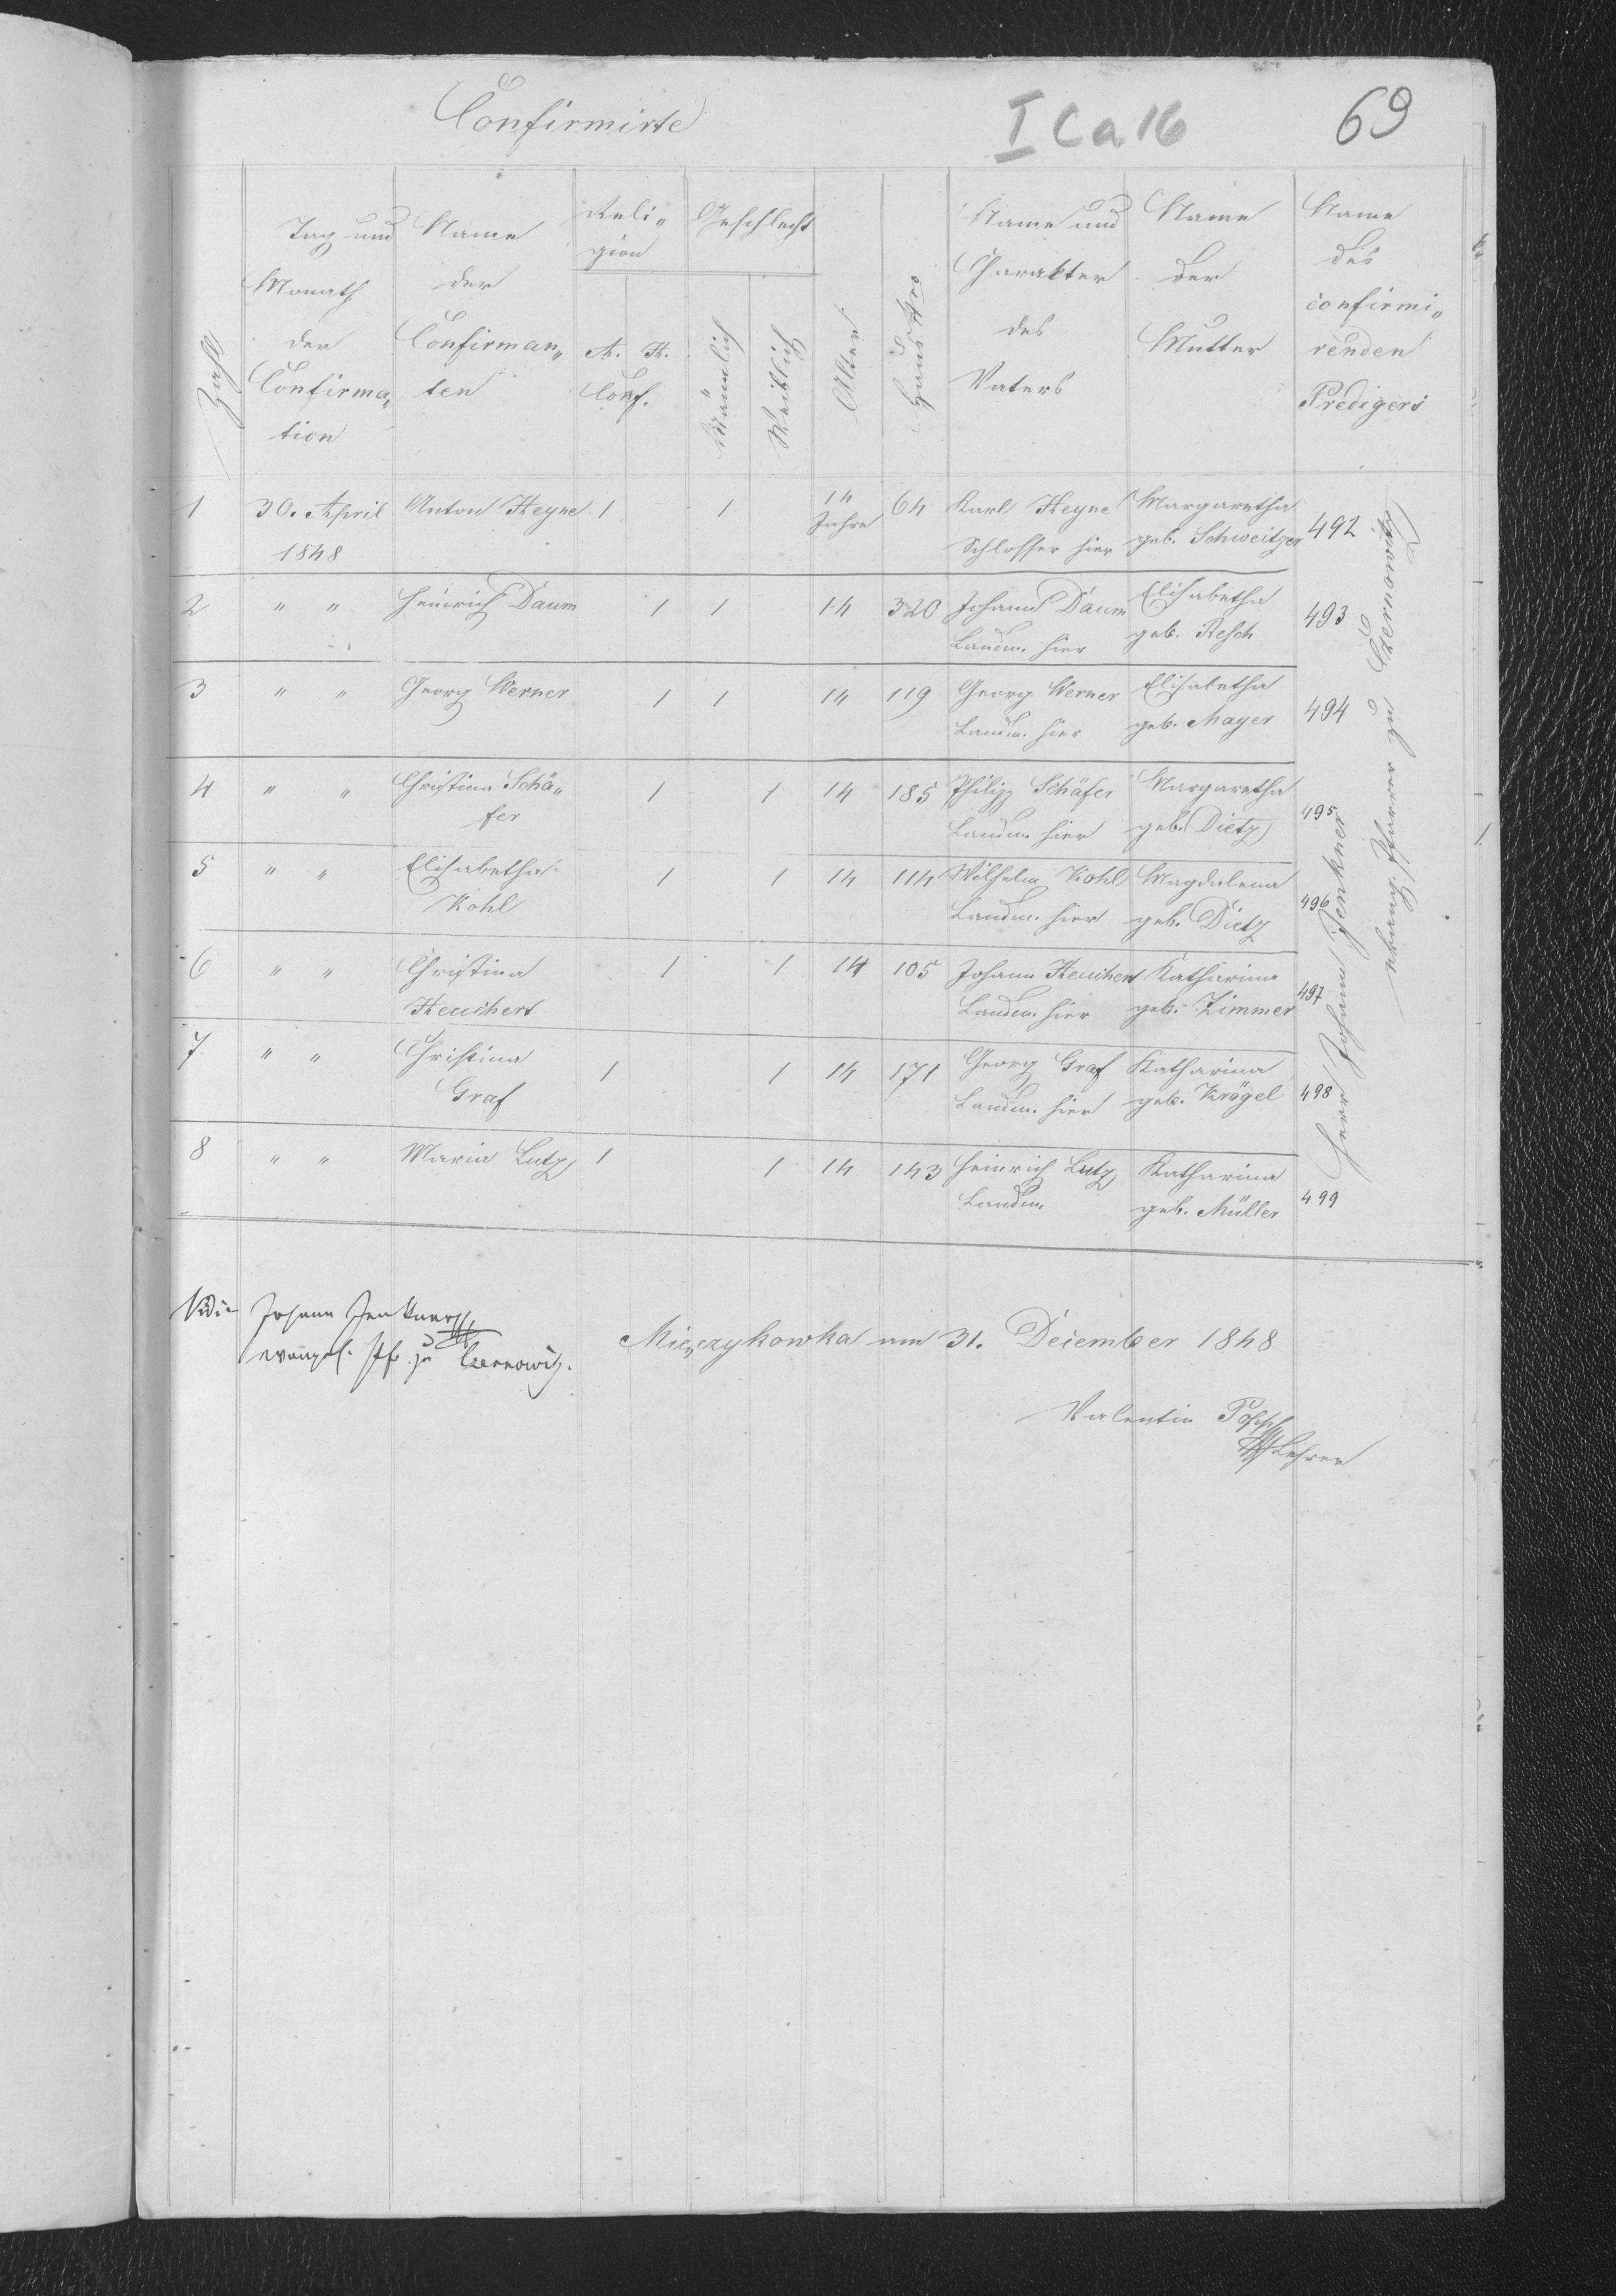 Confirmirte
I C a 16
69
Zahl
Tag und
Monath
der
Confirma„
tion
Name
der
Confirman„
ten
Reli„
gion
A. H.
Conf.
Geschlecht
Männlich
Weiblich
Alter
Haus Nro
Name und
Charakter
des
Vaters
Name
der
Mutter
Name
des
confirmi„
renden
Predigers
1 30. April Anton Heyne 1 1 14 64 Karl Heyne Margaretha 492
1848 Jahre Schlosser hier geb. Schweitzer
2 " " Heinrich Daum 1 1 14 320 Johann Daum Elisabetha 493
Landm. hier geb. Resch
3 " " Georg Werner 1 1 14 119 Georg Werner Elisabetha 494
Landm. hier geb. Mayer
4 " " Christina Schä„ 1 1 14 185 Philipp Schäfer Margaretha 495
fer Landm. hier geb. Dietz
5 " " Elisabetha 1 1 14 114 Wilhelm Kohl Magdalena 496
Kohl Landm. hier geb. Dietz
6 " " Christina 1 1 14 105 Johann Heuchert Katharina 497
Heuchert Landm. hier geb. Zimmer
7 " " Christina 1 1 14 171 Georg Graf Katharina 498
Graf Landm. hier geb. Krögel
8 " " Maria Lutz 1 1 14 143 Heinrich Lutz Katharina 499
Landm. geb. Müller
Herr Johann Jenkner
evang. Pfarrer zu Czernowitz
Vidi Johann Jenkner
evangel. Pfr. zu Czernowitz.
Mie„czykowka am 31. December 1848
Valentin Popp
Lehrer